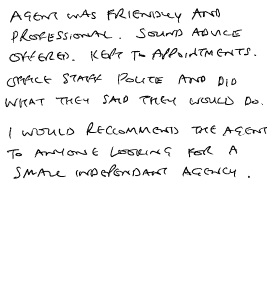 AGENT WAS FRIENDLY AND
PROFESSIONAL. SOUND ADVICE
OFFERED. KEPT TO APPOINTMENTS.
OFFICE STAFF POLITE AND DID
WHAT THEY SAID THEY WOULD DO.
I WOULD RECCOMMEND THE AGENT
TO ANYONE LOOKING FOR A
SMALL INDEPENDANT AGENCY.